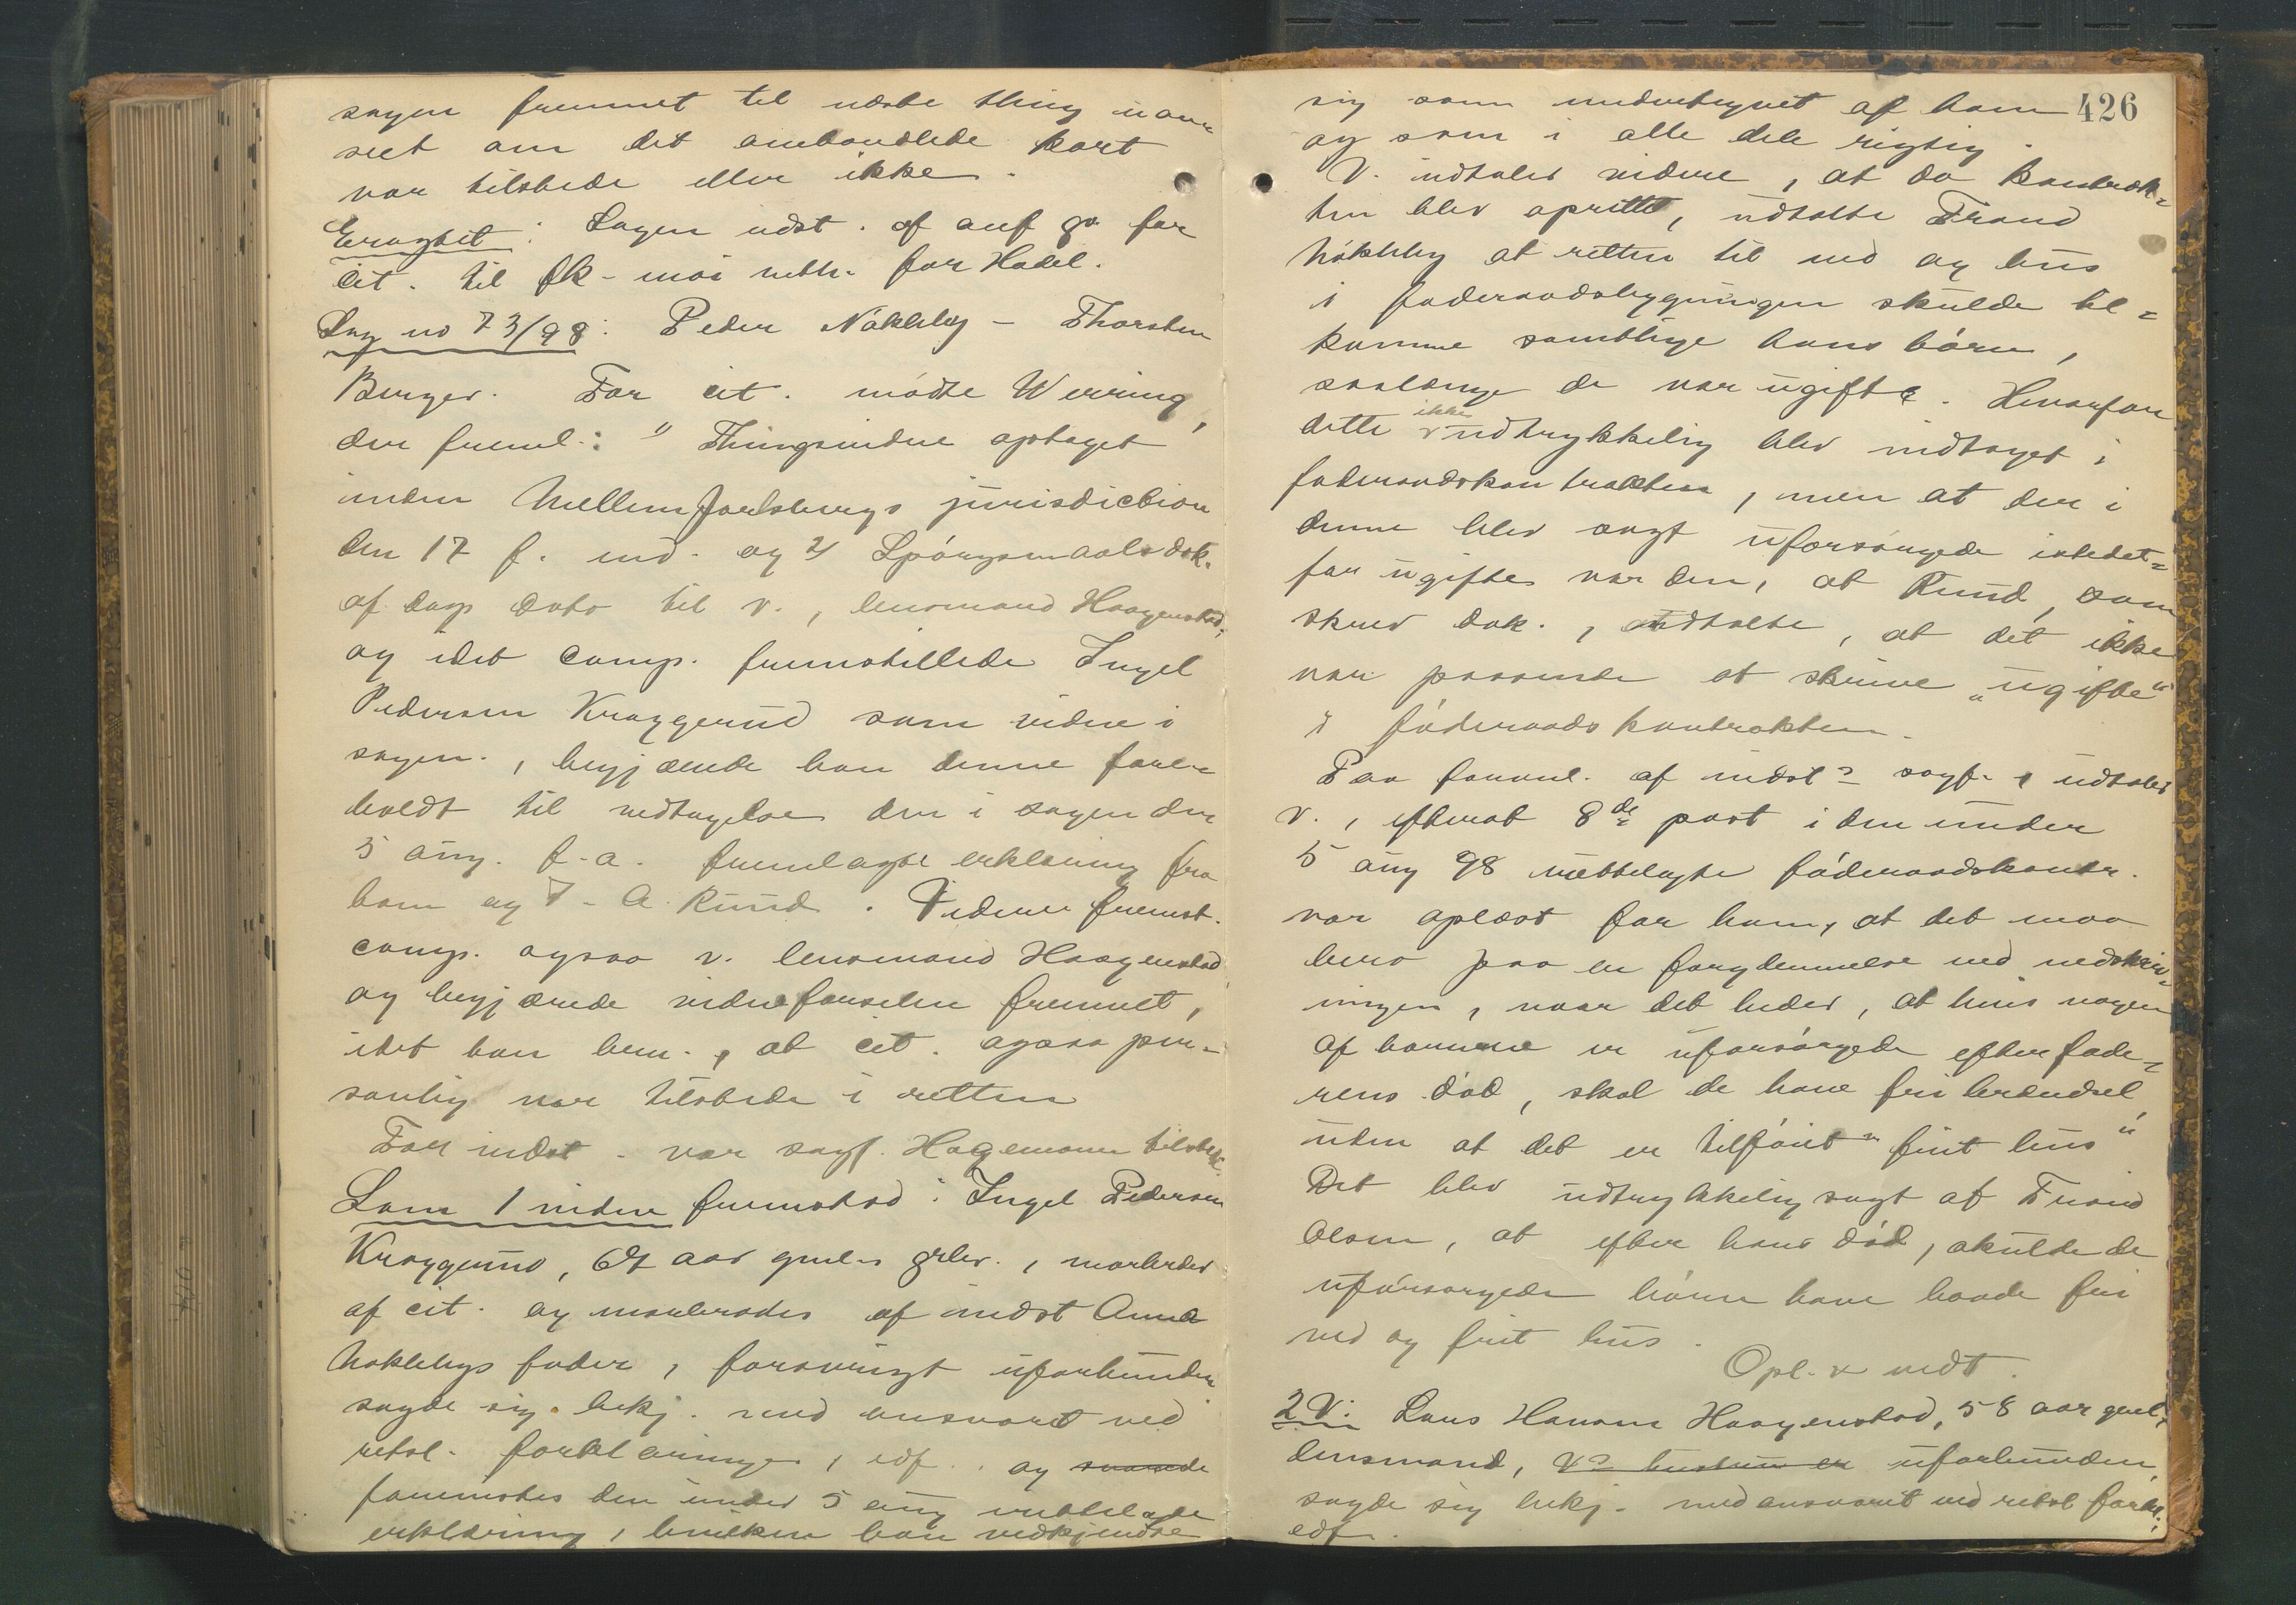 sagen fremmet til næste thing uan-
seet om det omhandlede kort
var tilstede eller ikke.
Eragtet: Sagen udst. af anf gr for
Cit. til fk-mæs retth. for Hadel.
Sag no 73/98: Peder Nøkleby – Thorsten
Berger. For cit. mødte Werring,
der freml.: " Thingsvidne optaget
inden MellemJarlsbergs jurisdiction
den 17 f. md. og 2) Spørgsmaalsdok.
af dags dato til v., lensmand Haagenstad,
og idet comp. fremstillede Ingel
Pedersen Kraggerud som vidne i
sagen., begjærede han denne fore-
holdt til vedtagelse den i sagen den
5 aug. f.a. fremlagte erklæring fra
ham og T. A. Ruud. Videre fremst.
comp. ogsaa v. lensmand Haagenstad
og begjærede vidneførselen fremmet,
idet han bem., at cit. ogsaa per-
sonlig var tilstede i retten
For indst. var sagf. Hagemann tilstede.
Som 1 vidne fremstod: Ingel Pedersen
Kraggerud, aar gml. grbr., morbroder
af cit. og morbroder af indst Anna
Nøklebys fader, forøvrigt uforbunden
sagde sig bekj. med ansvaret ved
retsl. forklaringer, edf. og svarede
foreviistes den under 5 aug rettelagte
erklæring, hvilken han vedkjendte
426
sig som undertegnet af ham
og som i alle dele rigtig.
V. udtaler videre, at da kontrak-
ten blev oprettet, udtalte Trond
Nøkleby at retten til ved og hus
i føderaadsbygningen skulde til-
komme samtlige hans børn,
saalænge de var ugifte. Hvorfor
dette ikke udtrykkelig blev indtaget i
føderaadskontrakten, men at der i
denne blev sagt uforsørgede istedet-
for ugifte var den, at Ruud, som
skrev dok., udtalte, at det ikke
var passende at skrive "ugifte"
i føderaadskontrakten.
Paa foranl. af indst.s sagf., udtaler
v., efterat 8de post i den under
5 aug 98 rettelagte føderaadskontr.
var oplæst for ham, at det maa
bero paa en forglemmelse ved nedskriv-
ningen, naar det heder, at hvis nogen
af børnene er uforsørgede efter fade-
rens død, skal de have fri brændsel,
uden at det er tilføiet "frit hus"
Det blev udtrykkelig sagt af Trond
Olsen, at efter hans død, skulde de
uforsørgede børn have baade fri
ved og frit hus.
Opl. & vedt.
2 V: Lars Hansen Haagenstad, 58 aar gml.,
lensmand, V.s hustru er uforbunden,
sagde sig bekj. med ansvaret ved retsl fork.,
edf.